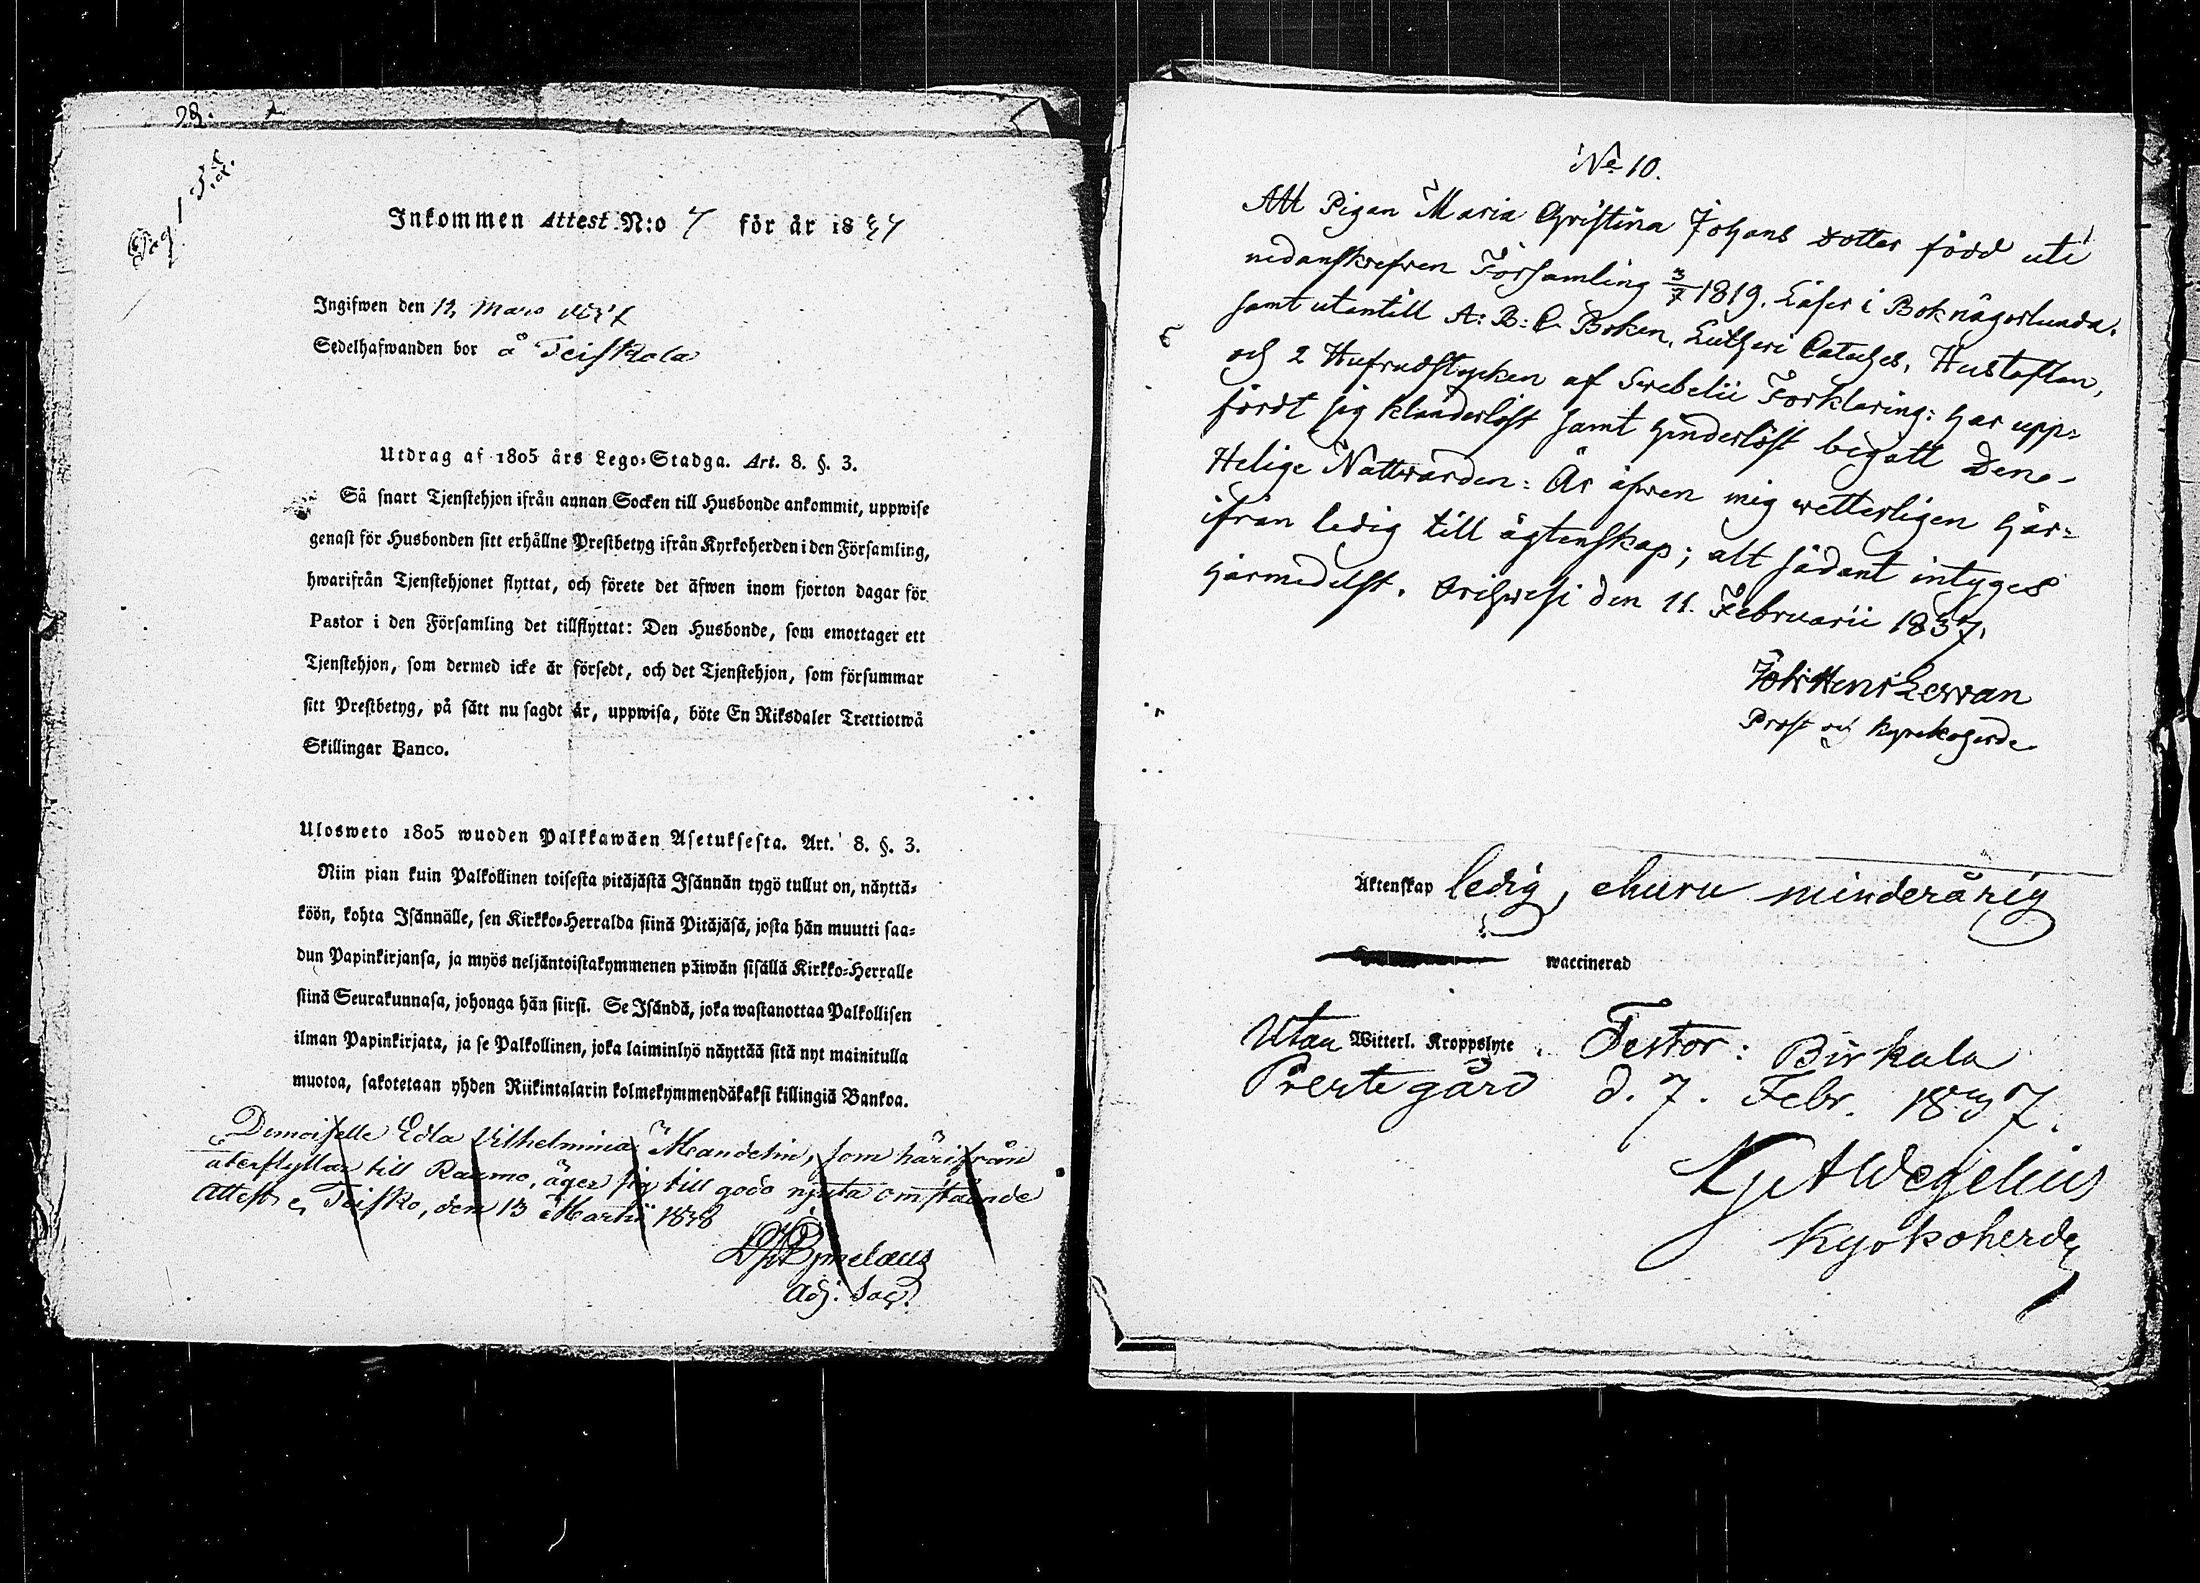 28.
Inkommen Attest N:o 7 för år 1837
Ingifwen den 12 Mars 1837
Sedelhafwanden bor å Teiskola
Utdrag af 1805 års Lego-Stadga. Art. 8. §. 3.
Så snart Tjenstehjon ifrån annan Socken till Husbonde ankommit, uppwise
genast för Husbonden sitt erhållne Prestbetyg ifrån Kyrkoherden i den Församling,
hwarifrån Tjenstehjonet flyttat, och förete det äfwen inom fjorton dagar för
Pastor i den Församling det tillflyttat: Den Husbonde, som emottager ett
Tjenstehjon, som dermed icke är försedt, och det Tjenstehjon, som försummar
sitt Prestbetyg, på sätt nu sagdt är, uppwisa, böte En Riksdaler Trettiotwå
Skillingar Banco.
Ulosweto 1805 wuoden Palkkawäen Asetuksesta. Art. 8. §. 3.
Niin pian kuin Palkollinen toisesta pitäjästä Isännän tygö tullut on, näyttä-
köön, kohta Isännälle, sen Kirkko-Herralda siinä Pitäjäsä, josta hän muutti saa-
dun Papinkirjansa, ja myös neljäntoistakymmenen päiwän sisällä Kirkko-Herralle
siinä Seurakunnasa, johonga hän siirsi. Se Isändä, joka wastanottaa Palkollisen
ilman Papinkirjata, ja se Palkollinen, joka laiminlyö näyttää sitä nyt mainitulla
muotoa, sakotetaan yhden Riikintalarin kolmekymmendäkaksi killingiä Bankoa.
Demoiselle Edla Vilhelmina Mandelin, som härifrån
återflyttar till Raumo, äger sig till godo njuta omstående
Attest, Teisko, den 13 Martii 1838
Adj. Sac.
No 10.
Att Pigan Maria Christina Johans dotter född uti
nedanskrefven Församling 3/7 1819. Läser i Bok någorlunda.
samt utantill A: B: C Boken, Lutheri Cateches, Hustaflan,
och 2 Hufvudstycken af Swebelii Förklaring: har upp-
fördt sig klanderlöst samt hinderlöst begått Den
Helige Nattvarden: Är äfven mig vetterligen här-
ifrån ledig till ägtenskap; alt sådant intyges
härmedelst. Orihvesi den 11. Februarii 1837.
Prost och Kyrkoherde
Äktenskap ledig, ehuru minderårig
waccinerad
Utan Witterl. Kroppslyte. Testor: Birkala
Prestegård d. 7. Febr. 1837.
Wegelius
Kyrkoherde